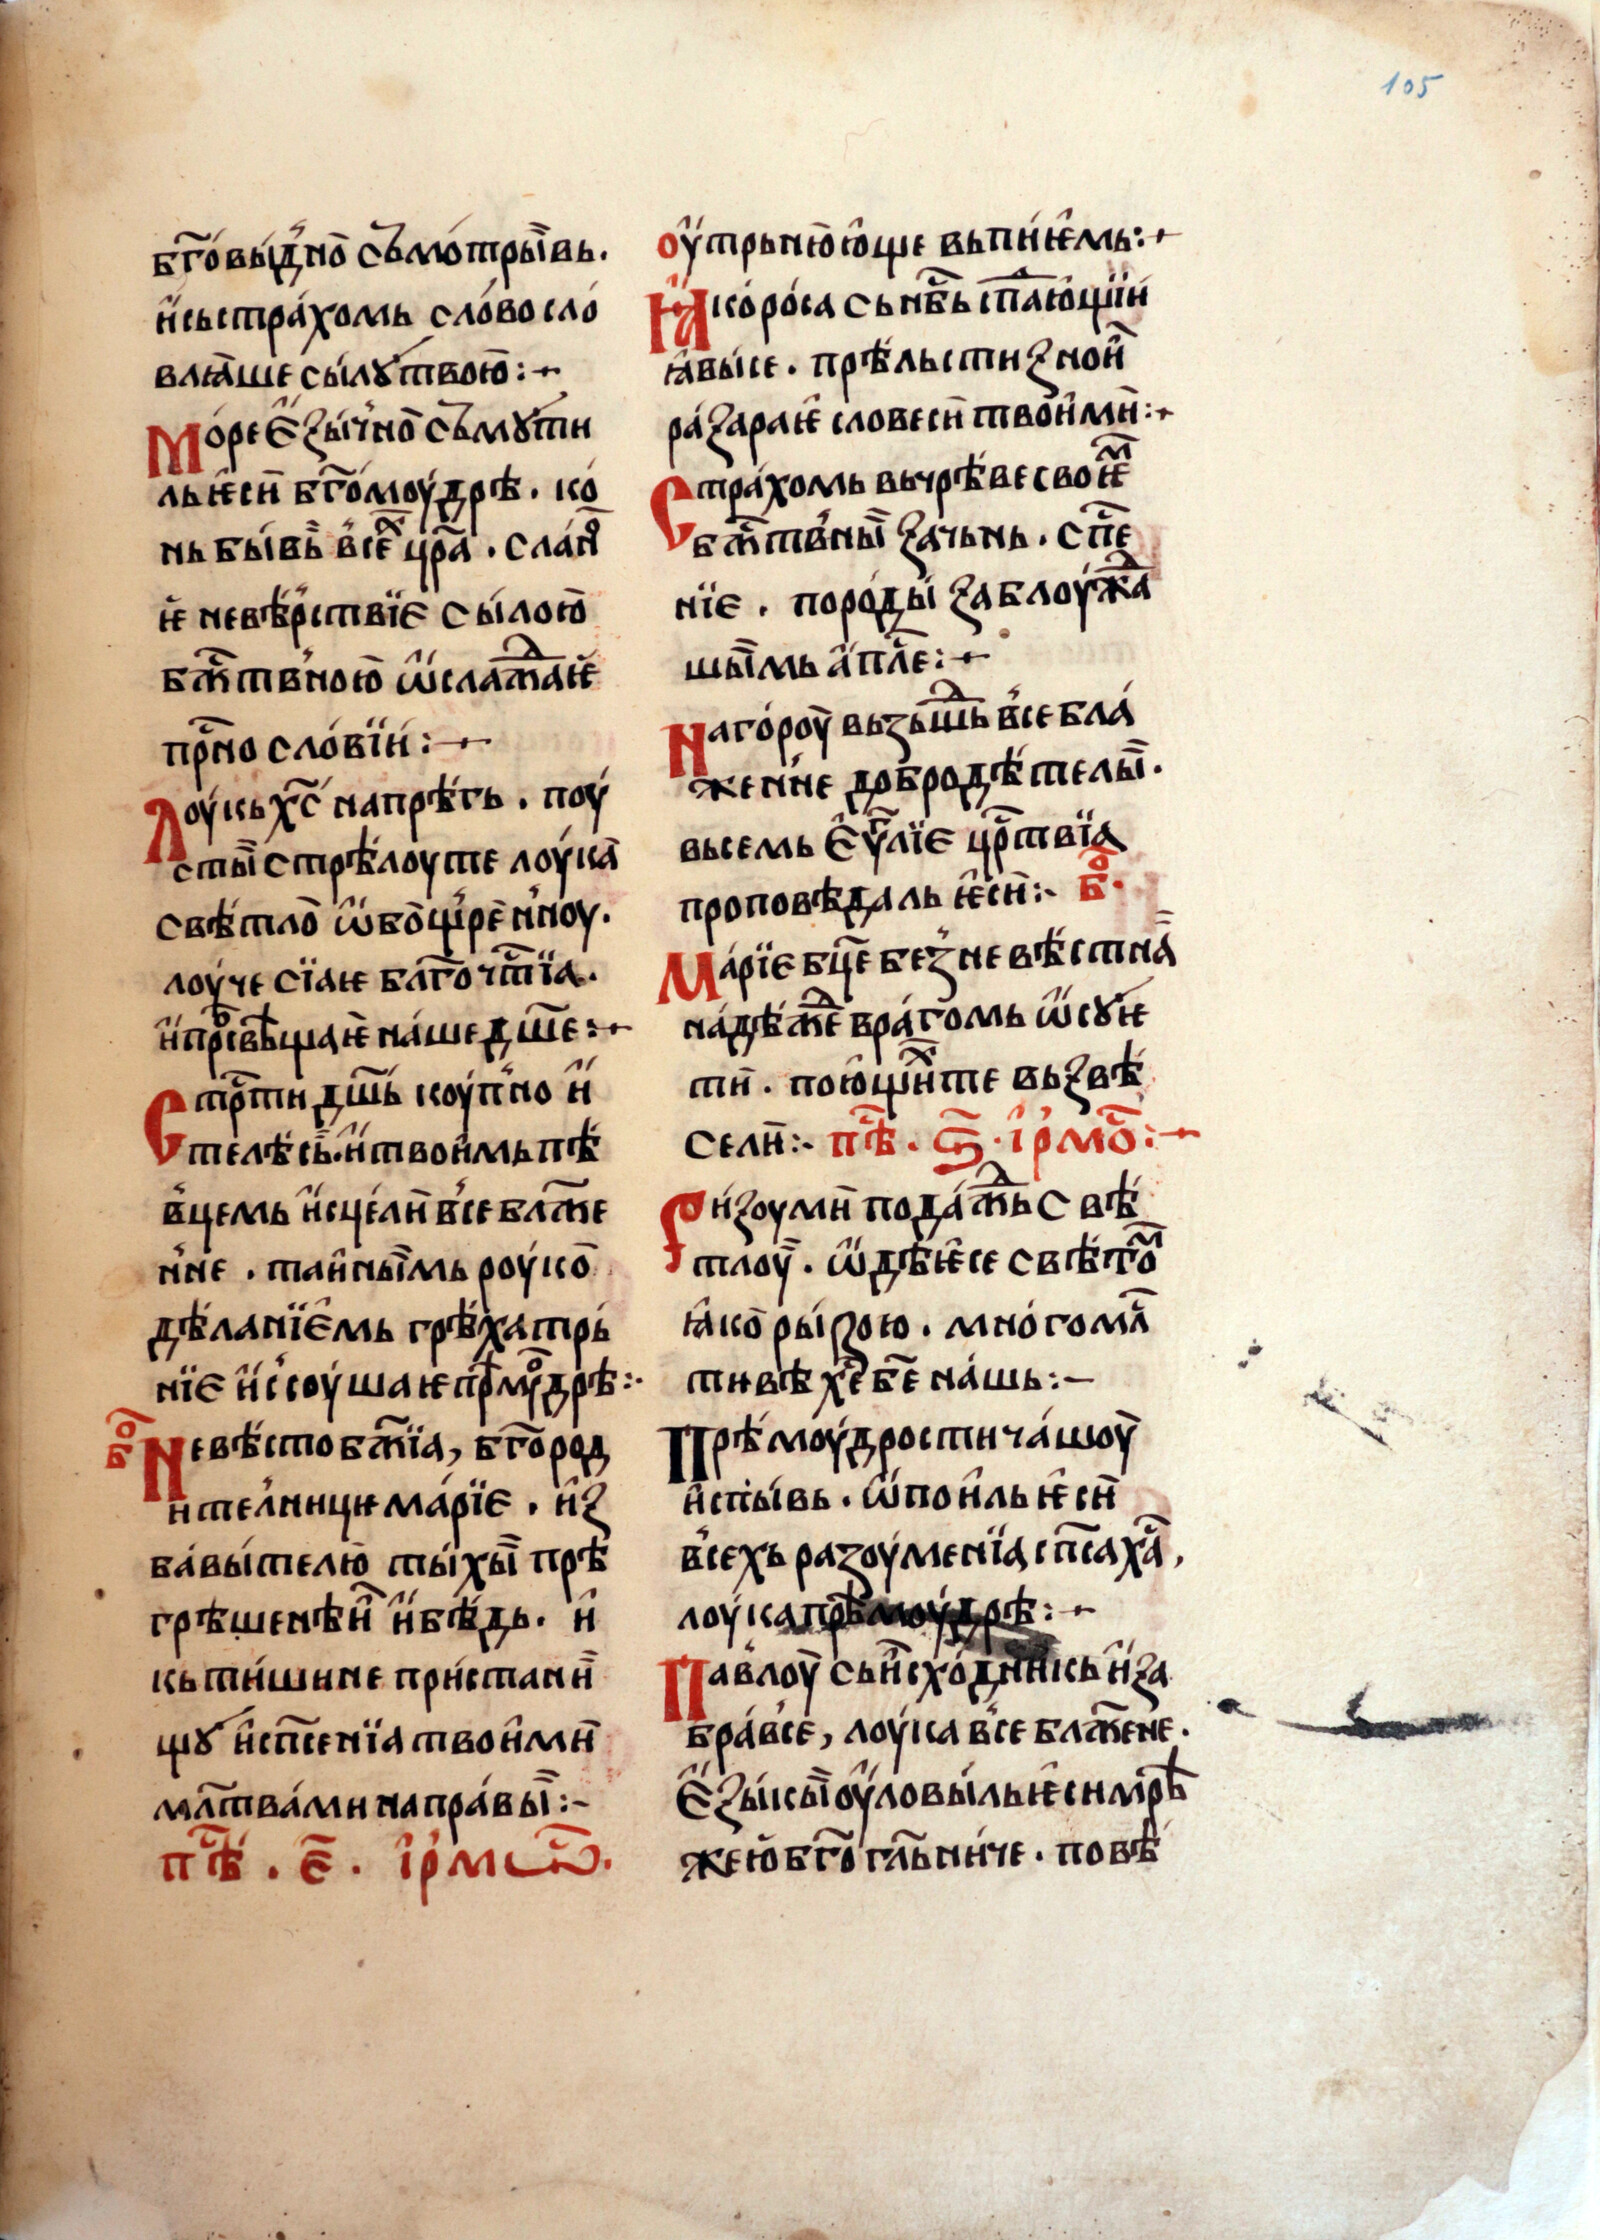 105
бг҃овы́дно съмотры́вь.
и҆ сь стра́хомь сло́во сло
влꙗше сы́лꙋ твою:-
Мо́ре є҆зы́чно съмꙋти
ль ѥси бг҃омоу́дрѣ. ко́
нь бы́вь всѣх цр҃а. сла́но
ѥ невѣ́рствїє сы́лою
бж҃твною ѡ҆слажаѥ
пр҃но сло́вїи:-
Лоу́кь хс҃ напрѣ́гь. поу́
сты стрѣ́лоу те лоу́ка
свѣ́тло ѡ҆бощренноу.
лоу́че сїаѥ блг҃очт҃їа.
и҆ просвѣщаѥ на́ше дш҃е:-
Стр҃ти дш҃ь коу́пно и҆
телѣ́сь. и҆ твои́мь пѣ
вцемь и҆сцѣ́ли все блаже
нне. таи́ннымь роу́ко
дѣ́ланїємь грѣ́ха трь́
нїє и҆ссоу́шаѥ прѣмоу́дрѣ:-
бо҃
Невѣ́сто бж҃їа, бг҃ород
ителницѥ ма́рїє. и҆з
ба́вы́телю ты́хы прѣ
грѣшенѣи и҆ бѣ́дь. и҆
кь ти́шине при́стани
щꙋ и҆ сп҃сенїа твои́ми
мл҃тва́ми напра́вы:-
пѣ҃. є҃. і҆рмѡ҃.
оу҆трьнюю҆ще вьпиѥмь:-
Ꙗко ро́са сь нб҃ь спа́ю҆щїи
ꙗвы́се. прѣ́льсти зно́и
ра́зараѥ словеси твои́ми:-
Стра́хомь вь чрѣ́ве своѥм
бж҃твны зачьнь. сп҃се
нїє. поро́ды заблоу́жа
шы́мь а҆пл҃е:-
На го́роу вьзьшь все бла́
женне добродѣ́телы.
вьсемь є҆ѵⷢ҇лїє цр҃твїа
проповѣ́даль ѥси:- бо҃.
Ма́рїє бц҃е без невѣ́стна
на́дѣже вра́гомь ѡ҆сꙋѥ
ти. пою́щих те вьзвѣ
сели:- пѣ҃. ѕ҃. і҆рмо҃:-
Ри́зоу ми пода́жь свѣ́
тлоу. ѡ҆дѣѥсе свѣ́том
ꙗко ры́зою. мно́гомл҃
тивѣ хс҃е бж҃е на́шь:-
Прѣмоу́дрости ча́шоу
и҆спы́вь. ѡ҆поиль ѥси
всехь разоу́менїа сп҃са ха҃,
лоу́ка прѣмоу́дрѣ:-
Павлоу сь и҆схо́дникь и҆ за
бра́вce, лоу́ка все блажене.
Є҆зы́кы оу҆ловы́ль ѥси мрѣ
жею бг҃огл҃ьниче. по вѣ